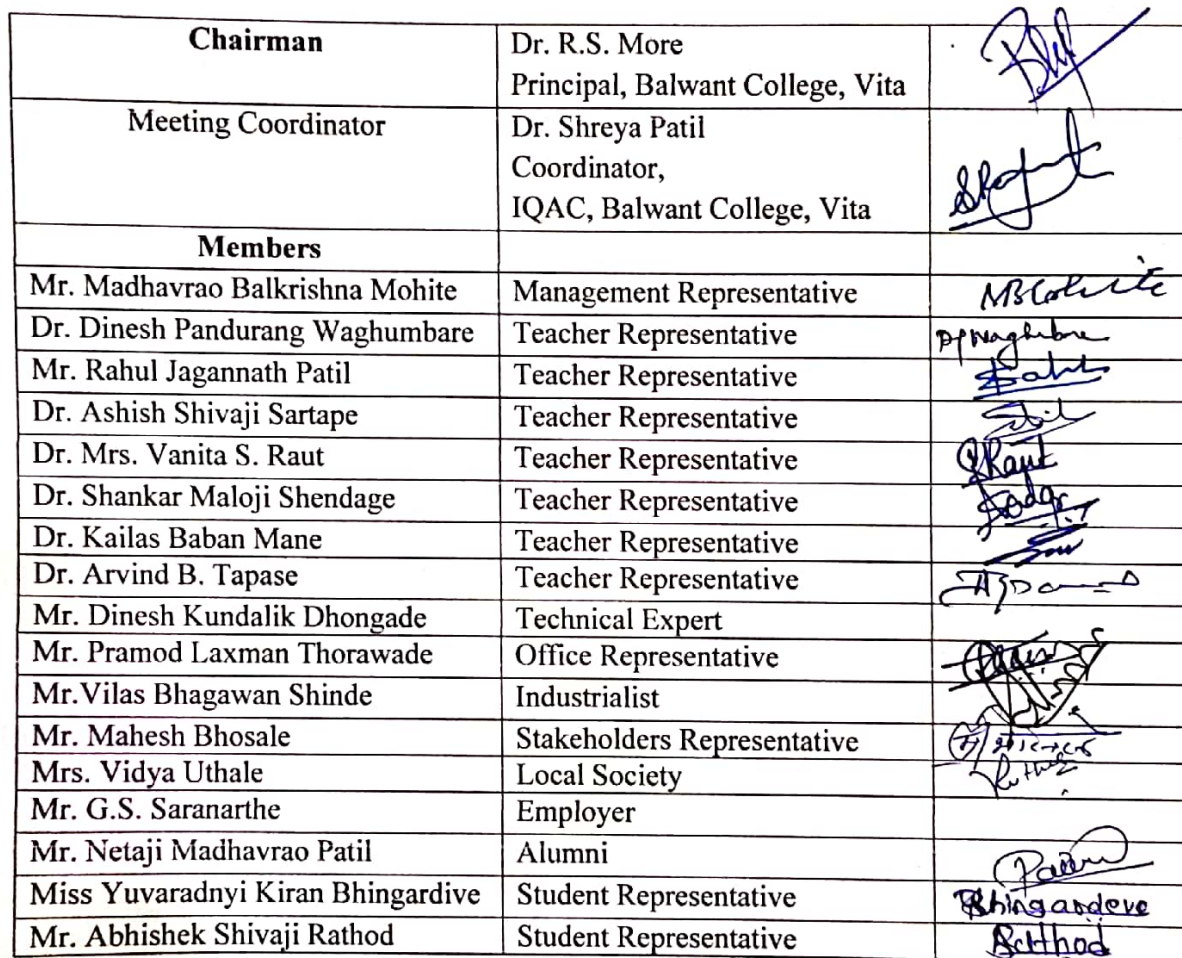 Chairman
Dr. R.S. More
Principal, Balwant College, Vita
Meeting Coordinator
Dr. Shreya Patil
Coordinator,
IQAC, Balwant College, Vita
Members
Mr. Madhavrao Balkrishna Mohite Management Representative
Dr. Dinesh Pandurang Waghumbare Teacher Representative
Mr. Rahul Jagannath Patil Teacher Representative
Dr. Ashish Shivaji Sartape Teacher Representative
Dr. Mrs. Vanita S. Raut Teacher Representative
Dr. Shankar Maloji Shendage Teacher Representative
Dr. Kailas Baban Mane Teacher Representative
Dr. Arvind B. Tapase Teacher Representative
Mr. Dinesh Kundalik Dhongade Technical Expert
Mr. Pramod Laxman Thorawade Office Representative
Mr.Vilas Bhagawan Shinde Industrialist
Mr. Mahesh Bhosale Stakeholders Representative
Mrs. Vidya Uthale Local Society
Mr. G.S. Saranarthe Employer
Mr. Netaji Madhavrao Patil Alumni
Miss Yuvaradnyi Kiran Bhingardive Student Representative
Mr. Abhishek Shivaji Rathod Student Representative